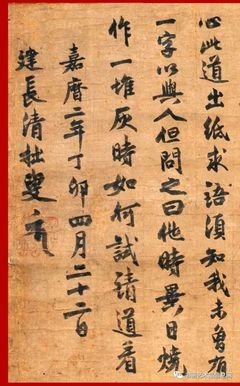 心此道出紙求語須知我未曾有
一字以與人但問之曰他時異日燒
作一堆灰時如何試請道看
嘉曆二年丁卯四月二十二日
建長清拙叟